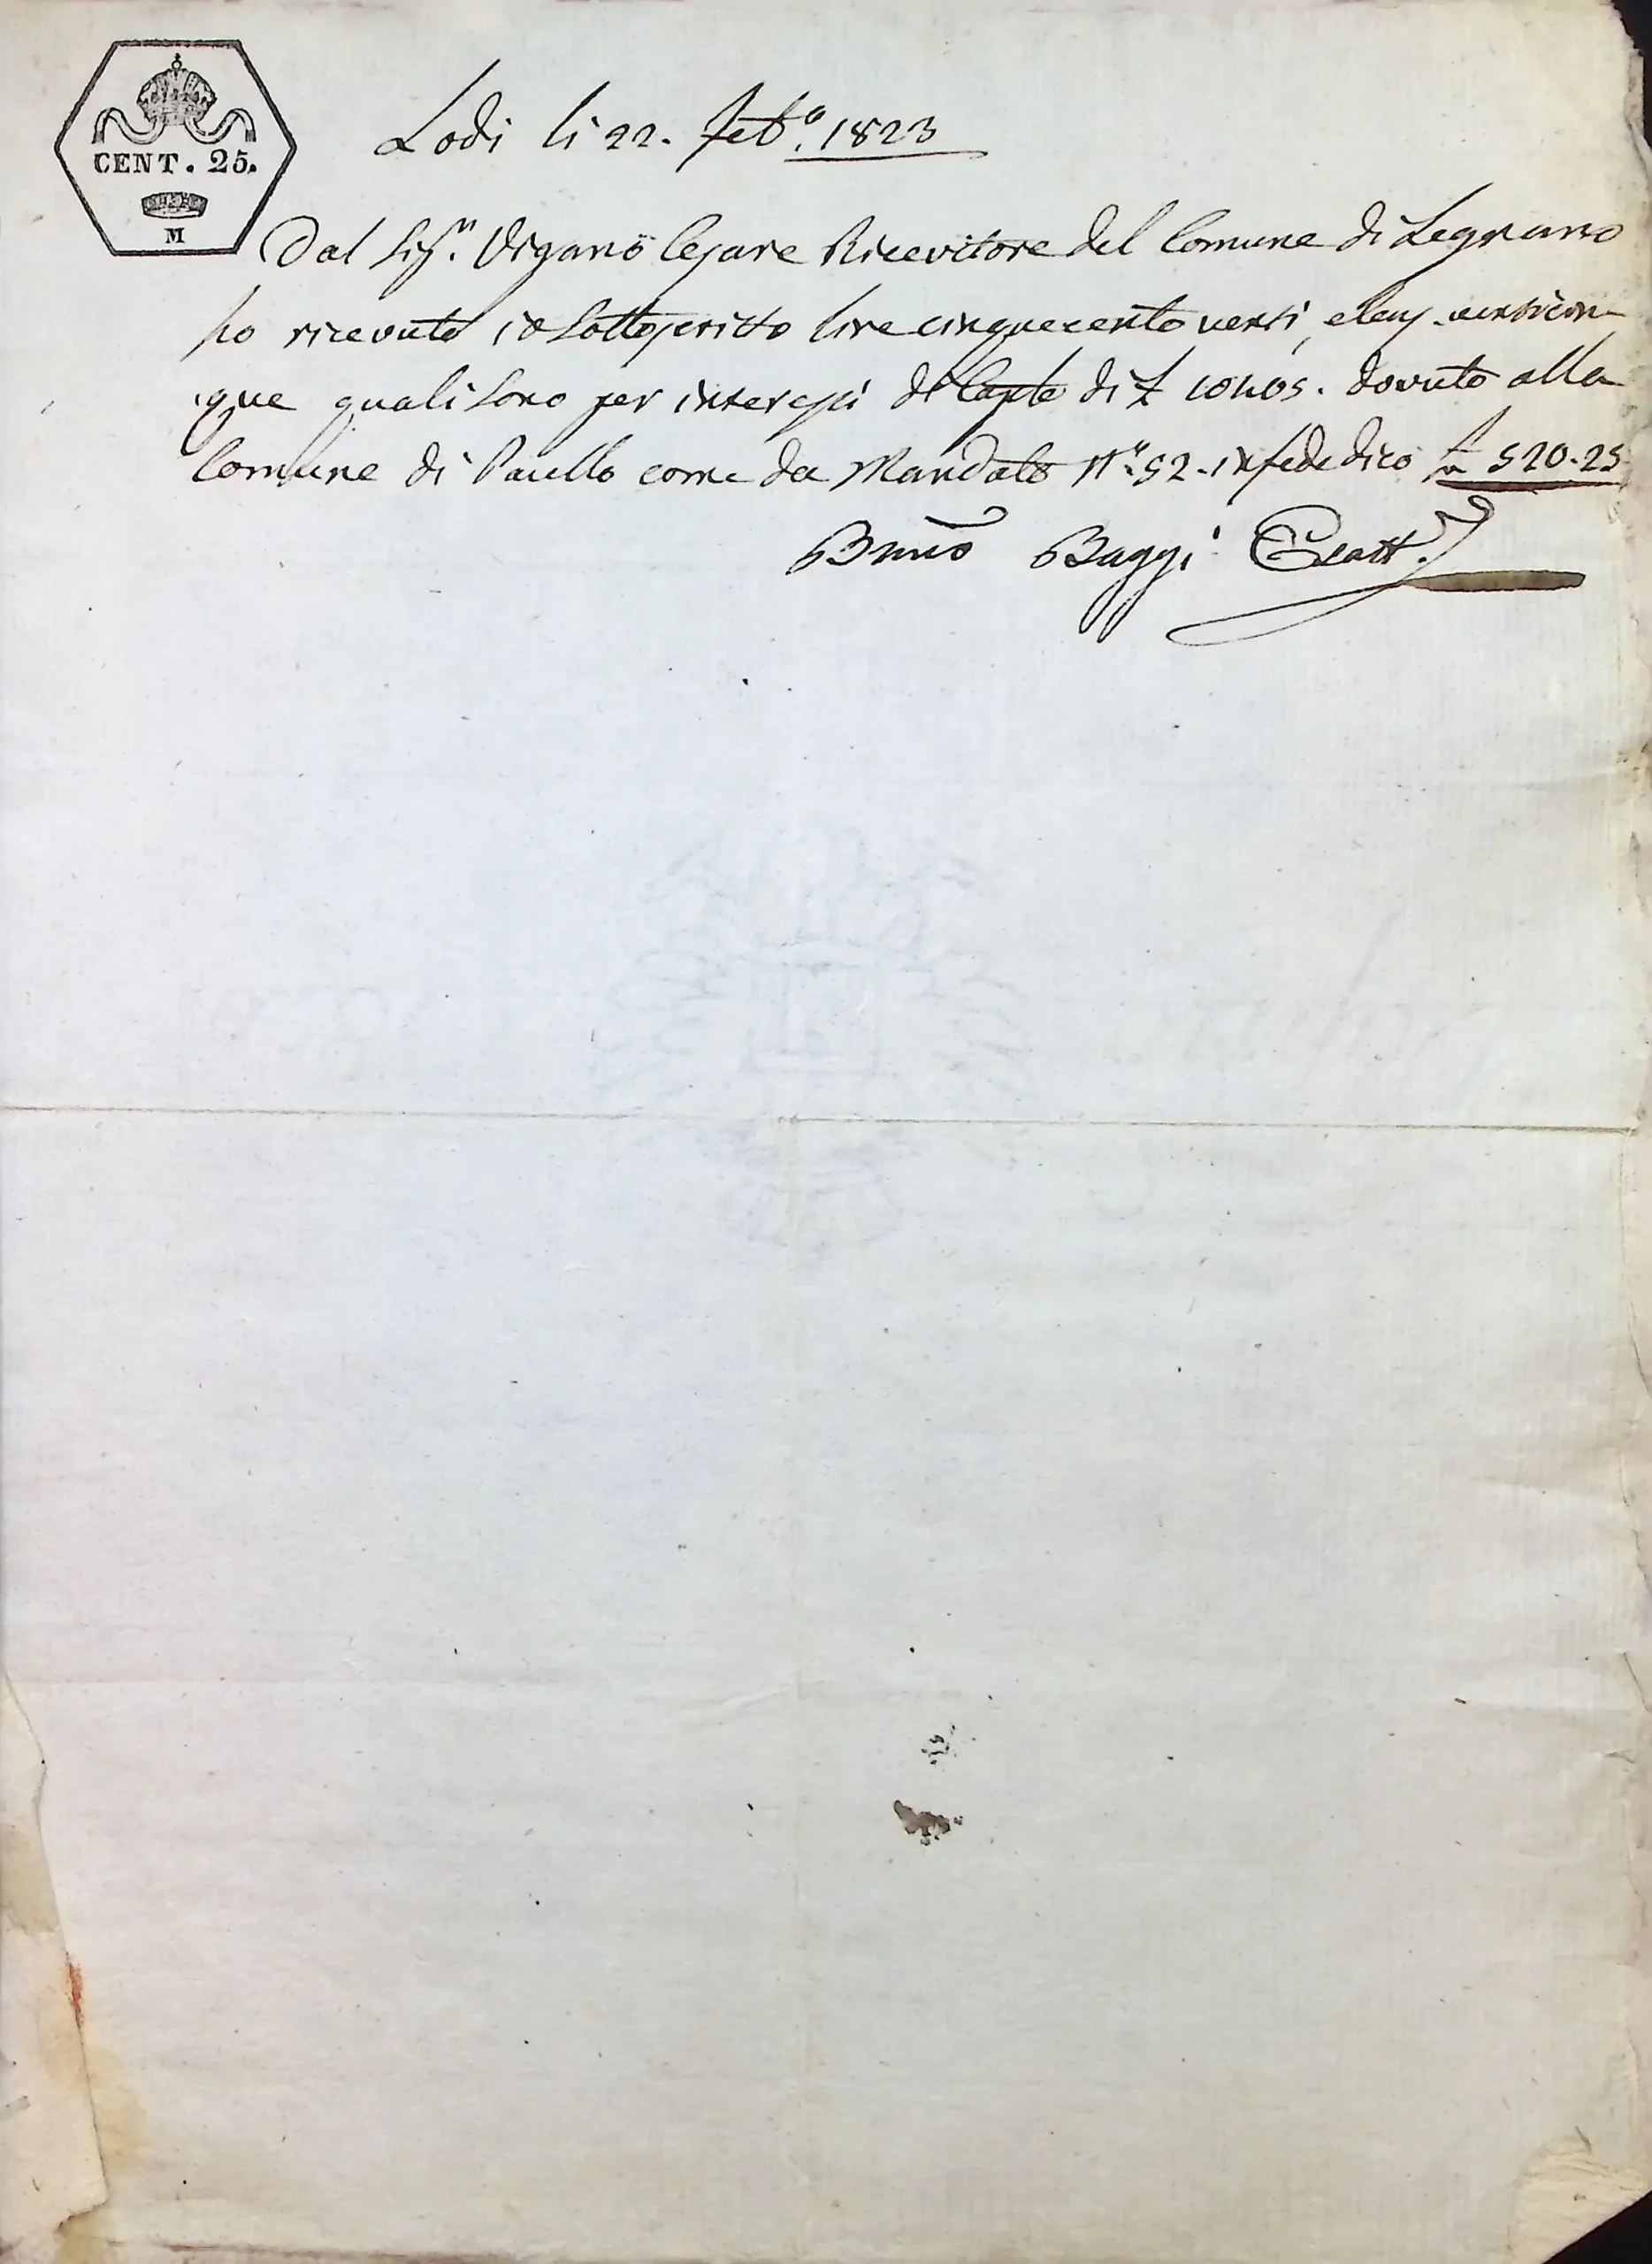 CENT. 25.
M
Lodi li 22. feb.º 1823
Dal Sig.r Viganò Cesare Ricevitore del Comune di Legnano
ho ricevuto io sottoscritto lire cinquecento venti, e cen. venticin-
que quali sono per interessi di Caple di £ 10405. dovuto alla
Comune di Paullo come da Mandato N.º 52. in fede dico £ 520.25
Bruno Baggi Esatt.